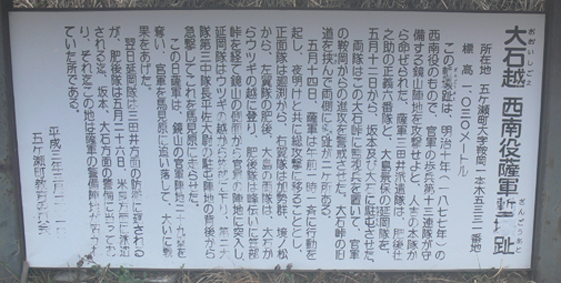 大石越 西南役薩軍塹壕趾
おおいしごえ
ざんごうあと
所在地 五ケ瀬町大字鞍岡一本木五三二一番地
標高一、〇三〇メートル
この塹壕趾は、明治十年(一八七七年)の
西南役のもので、官軍の歩兵第十三連隊が守
備する鏡山陣地を攻撃せよと、人吉の本隊か
ら命ぜられた、薩軍三田井派遣隊は、肥後
之助の正義六番隊と、大島景保の延岡隊を、
五月十二日から、坂本及び大石に駐屯させた。
両隊はこの大石峠に監視兵を置いて、官軍
の鞍岡からの進攻を警戒させた。大石峠の旧
道を挟んで両側に趾が二ケ所ある。
五月十四日、薩軍は午前一時一斉に行動を
起し、夜明けと共に総攻撃に移ることとし、
正面隊は廻渕から、右翼隊は加勢群、境ノ松
から、左翼隊の肥後、大島の両隊は、大石か
らウツギの越に登り、肥後隊は峰伝いに笠部
峠を経て鏡山の側面から官軍の陣地に突入し
延岡隊はウツギの越から
隊第三中隊長平佐大尉の駐屯陣地の背後から
急撃してこれを馬見原に走らせた。
この日薩軍は、鏡山の官軍陣地二十九塁を
奪い、官軍を馬見原に追い落して、大いに戦
果をあげた。
翌日延岡隊は三田井方面の防衛に廻される
が、肥後隊は五月二十六日、
される迄、坂本、大石方面の警備に当ってお
り、それ迄この地は薩軍の警備陣地が
ていた所である。
平成三年三月
五ケ瀬町教育委員会